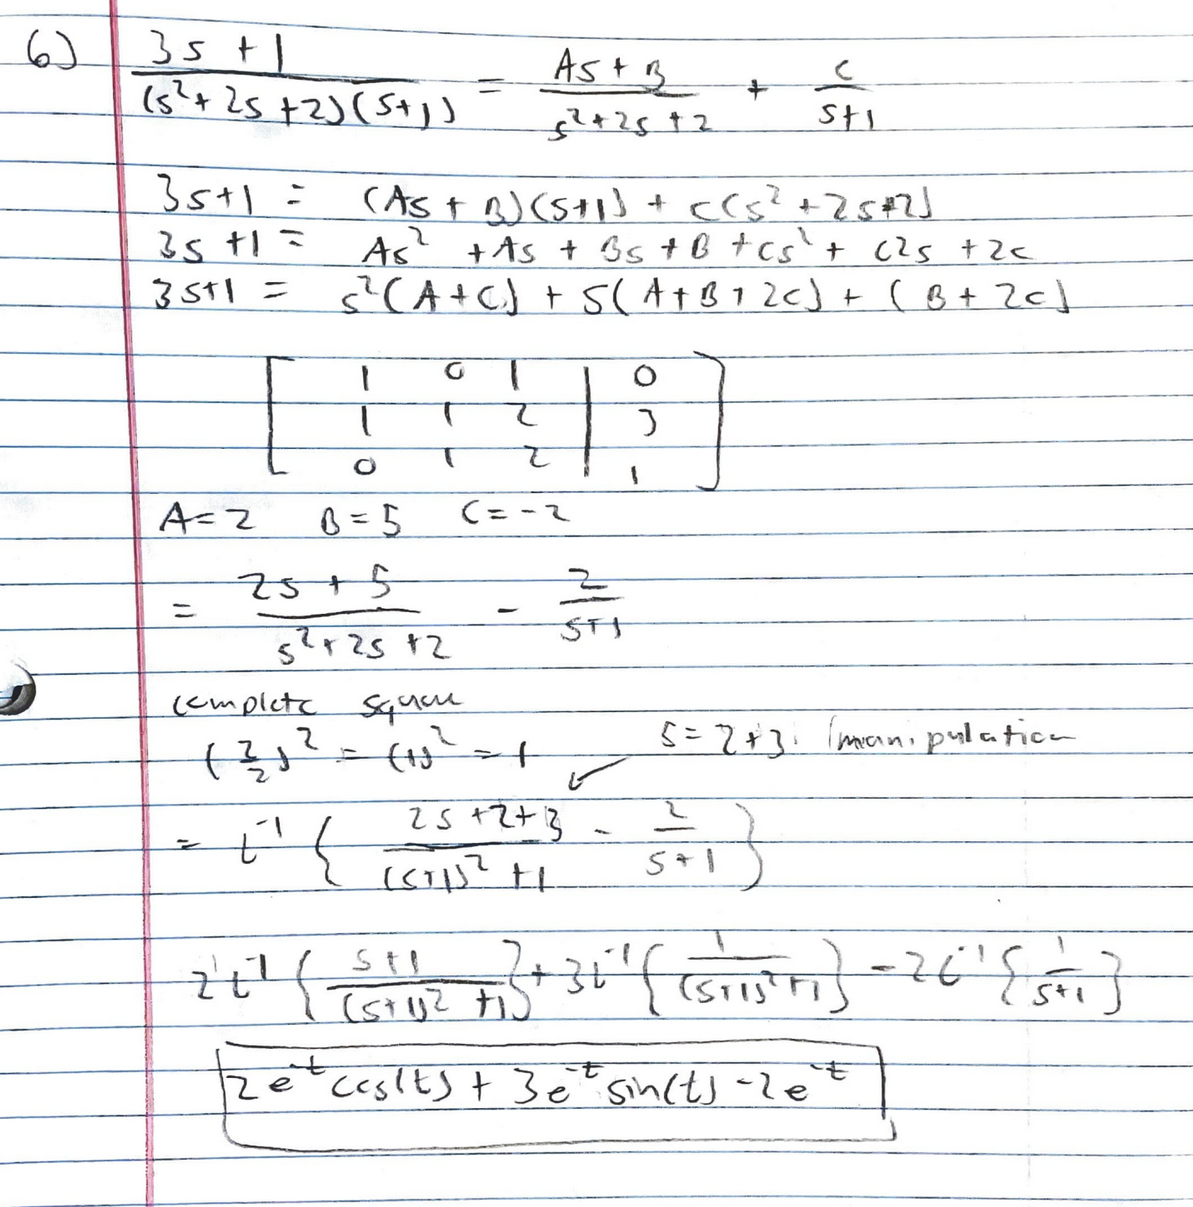 6) (3s + 1)/((s² + 2s + 2)(s+1)) = (As + B)/(s² + 2s + 2) + c/(s+1)
3s+1 = (As + B)(s+1) + c(s² + 2s+2)
3s +1 = As² + As + Bs + B + cs² + c2s + 2c
3s+1 = s²(A+c) + s(A+B+2c) + (B+2c)
[ 1 0 1 | 0
1 1 2 | 3
0 1 2 | 1 ]
A=2 B=5 C=-2
= (2s + 5)/(s² + 2s + 2) - 2/(s+1)
complete square
(2/2)² = (1)² = 1
5 = 2+3 : manipulation
= L⁻¹ { (2s+2+3)/((s+1)² +1) - 2/(s+1) }
2L⁻¹ { (s+1)/((s+1)² +1) } + 3L⁻¹ { 1/((s+1)²+1) } - 2L⁻¹ { 1/(s+1) }
2e^-t cos(t) + 3e^-t sin(t) - 2e^-t